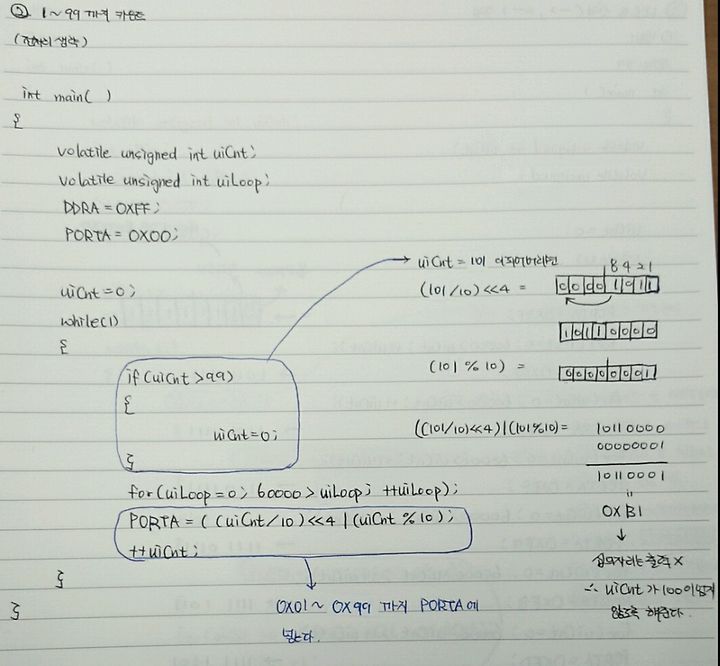 ② 1~99 까지 카운트
(전처리 생략)
int main( )
{
volatile unsigned int uiCnt;
volatile unsigned int uiLoop;
DDRA = 0XFF;
PORTA = 0X00;
uiCnt = 0;
while(1)
{
if(uiCnt >99)
{
uiCnt=0;
}
for(uiLoop = 0; 60000 > uiLoop; ++uiLoop);
PORTA = ( (uiCnt/10)<<4 | (uiCnt %10);
++uiCnt;
}
}
0X01~ 0X99 까지 PORTA에
넣는다.
uiCnt = 101 이 되어버리면
8 4 2 1
(101/10)<<4 = 0 0 0 0 1 0 1 1
1 0 1 1 0 0 0 0
(101 % 10) = 0 0 0 0 0 0 0 1
((101/10)<<4) | (101%10) = 1011 0000
00000001
1011 0001
=
0XB1
↓
십의자리는 출력 X
∴ uiCnt 가 100이 넘지
않도록 해준다.